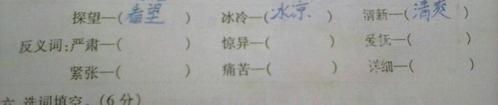 探望—(看望) 冰冷—(冰凉) 清新—(清爽)
反义词:严肃—( ) 惊异—( ) 爱抚—( )
紧张—( ) 痛苦—( ) 详细—( )
六 选词填空。(6分)